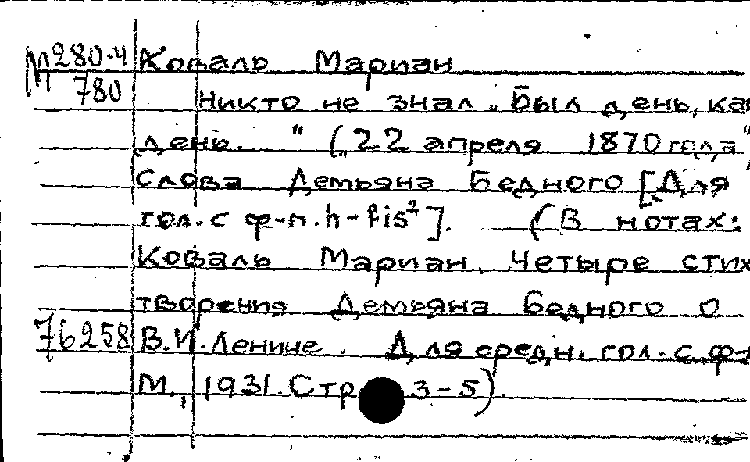 М 280-4 Коваль Мариан
780 Никто не знал. Был день, как
день. " („22 апреля 1870 года",
слова Демьяна Бедного [Для
гол. с ф-п. h-fis²]. (В нотах:
Коваль Мариан. Четыре стих
творения Демьяна Бедного о
76258 В.И. Ленине. Для средн. гол. с ф-
М., 1931. Стр 3-5).